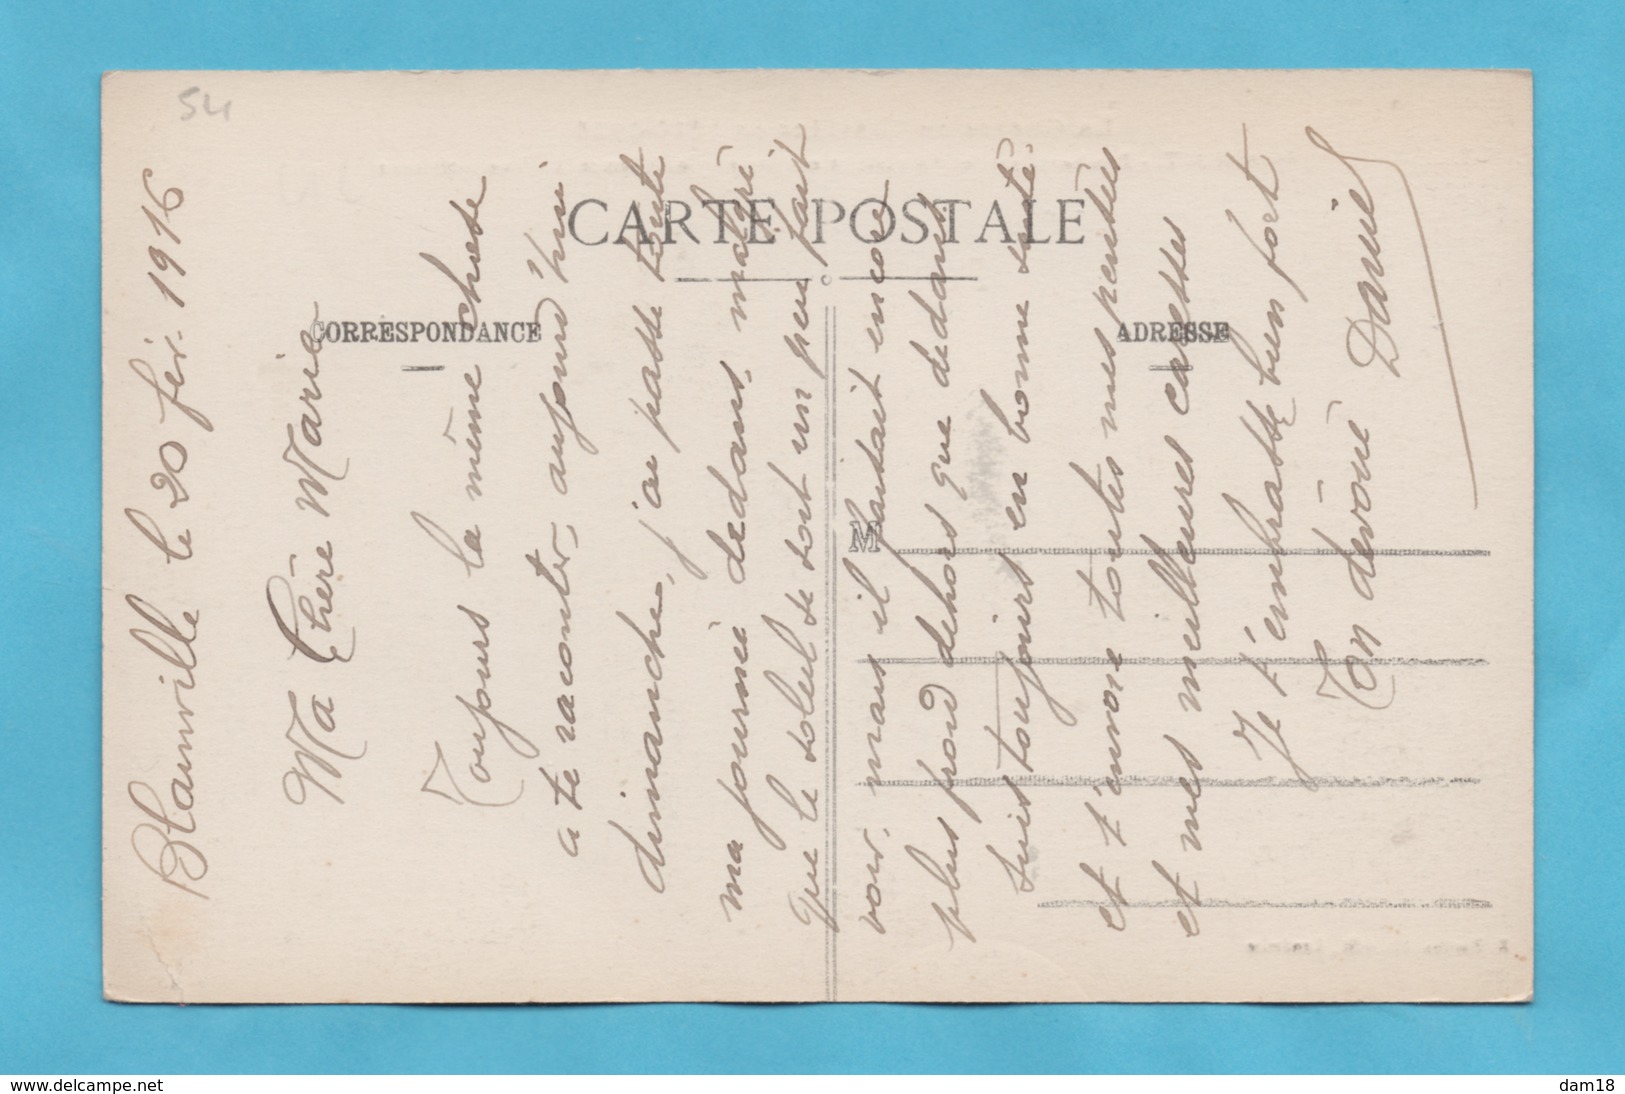 54
CARTE POSTALE
CORRESPONDANCE
ADRESSE
M
Blainville le 20 fév. 1916
Ma Chère Marie
Toujours la même chose
à te raconter, aujourd'hui
dimanche, j'ai passé toute
ma journée dedans, malgré
que le soleil se soit un peu fait
voir, mais il faisait encore
plus froid dehors que dedans
suis toujours en bonne santé.
et t'envoie toutes mes pensées
et mes meilleures caresses
Je t'embrasse bien fort
Ton dévoué Daniel
www.delcampe.net
dam18